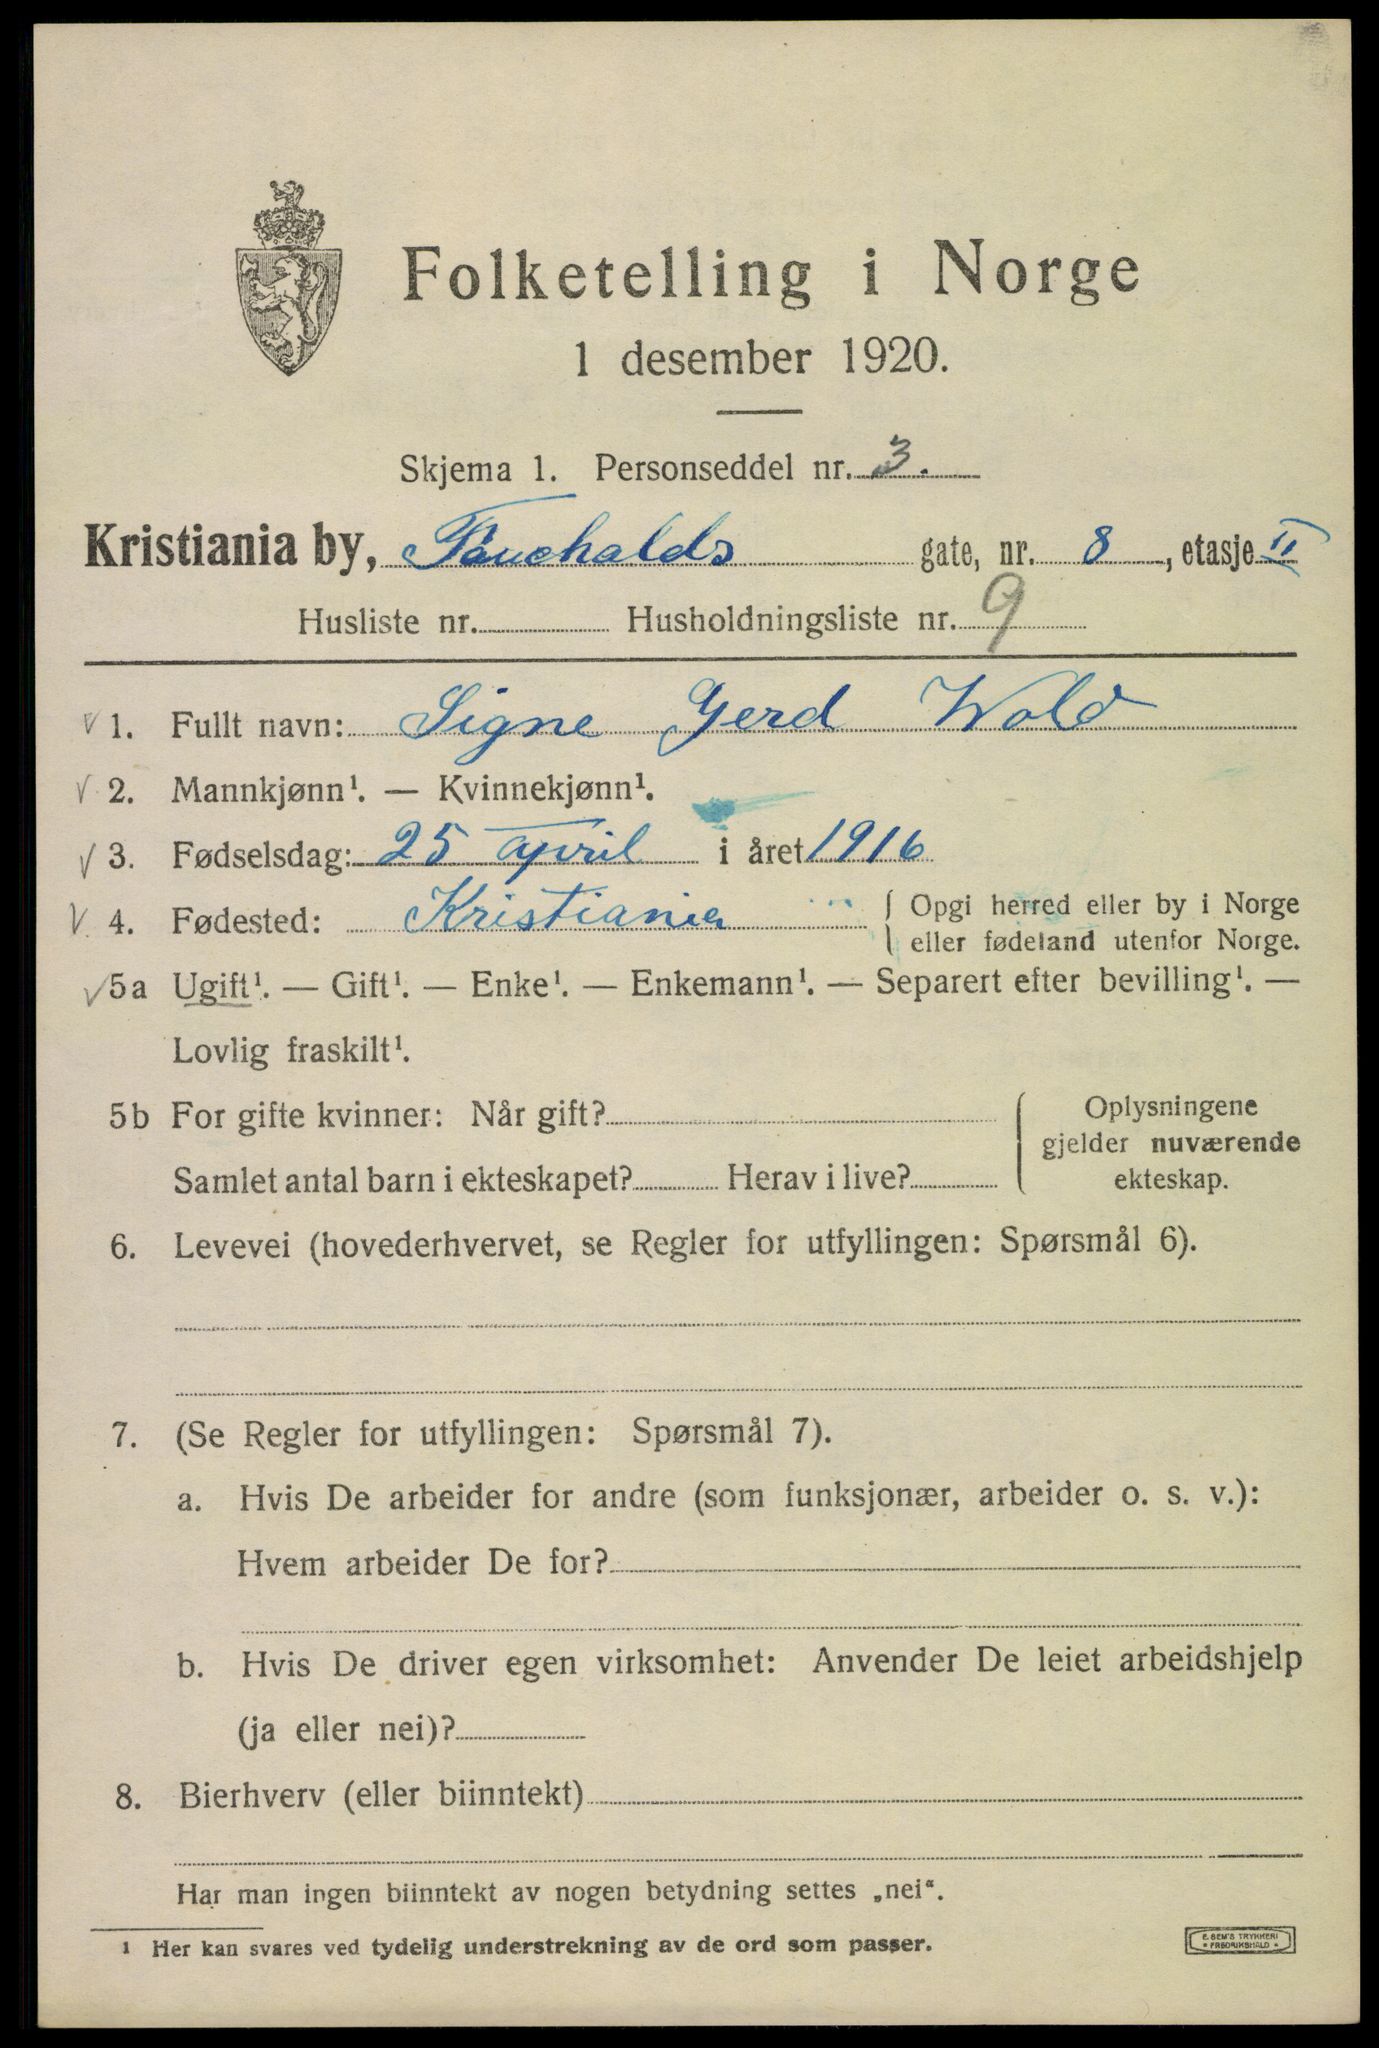 Folketelling i Norge
1 desember 1920.
Skjema 1. Personseddel nr. 3.
Kristiania by, Fauchalds gate, nr. 8, etasje II
Husliste nr. Husholdningsliste nr. 9
√ 1. Fullt navn: Signe Gerd Wold
√ 2. Mannkjønn¹. — Kvinnekjønn¹.
√ 3. Fødselsdag: 25 April i året 1916
√ 4. Fødested: Kristiania { Opgi herred eller by i Norge
eller fødeland utenfor Norge.
√ 5a Ugift¹. — Gift¹. — Enke¹. — Enkemann¹. — Separert efter bevilling¹. —
Lovlig fraskilt¹.
5b For gifte kvinner: Når gift? Oplysningene
gjelder nuværende
Samlet antal barn i ekteskapet? Herav i live? ekteskap.
6. Levevei (hovederhvervet, se Regler for utfyllingen: Spørsmål 6).
7. (Se Regler for utfyllingen: Spørsmål 7).
a. Hvis De arbeider for andre (som funksjonær, arbeider o. s. v.):
Hvem arbeider De for?
b. Hvis De driver egen virksomhet: Anvender De leiet arbeidshjelp
(ja eller nei)?
8. Bierhverv (eller biinntekt)
Har man ingen biinntekt av nogen betydning settes „nei“.
¹ Her kan svares ved tydelig understrekning av de ord som passer.
E. SEM'S TRYKKERI
* FREDRIKSHALD *